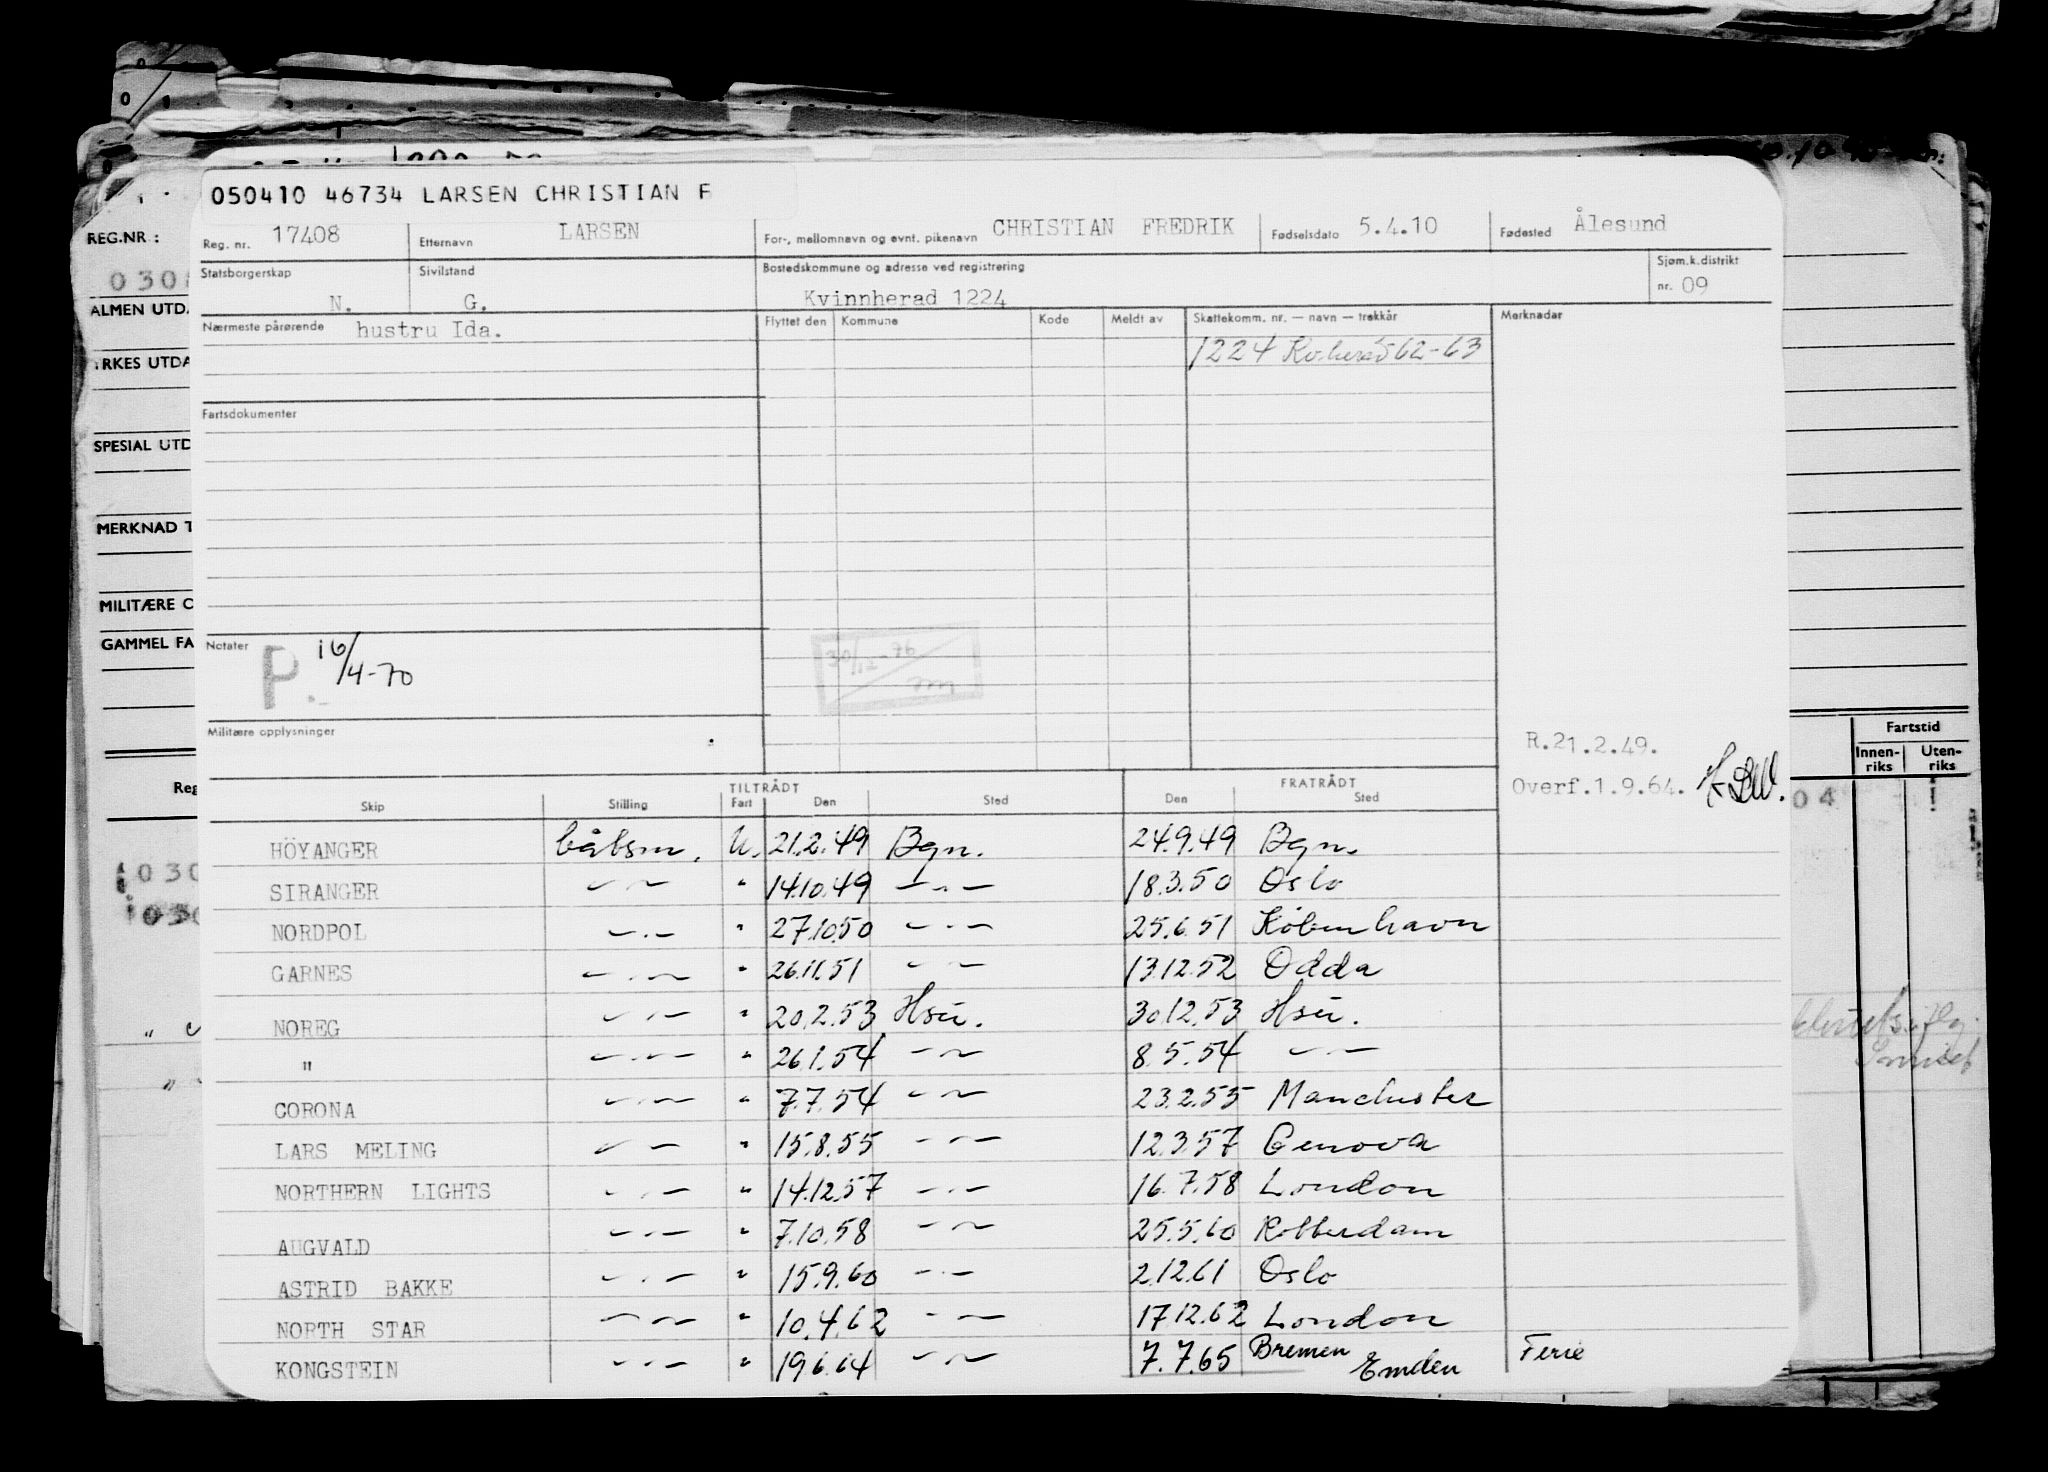 050410 46734 LARSEN CHRISTIAN F
REG.NR.:
Reg. nr. 17408 Etternavn LARSEN For-, mellomnavn og evnt. pikenavn CHRISTIAN FREDRIK Fødselsdato 5.4.10 Fødested Ålesund
Statsborgerskap N. Sivilstand G. Bostedskommune og adresse ved registrering Kvinnherad 1224 Sjøm.k.distrikt nr. 09
ALMEN UTD
Nærmeste pårørende hustru Ida. Flyttet den Kommune Kode Meldt av Skattekomm. nr. — navn — trekkår Merknader
1224 62-63
YRKES UTDA
Fartsdokumenter
SPESIAL UTD
MERKNAD T
MILITÆRE O
GAMMEL FA
Notater P. 16/4-70 30/12-76
Militære opplysninger
R.21.2.49.
Overf.1.9.64.
Fartstid
Innen-riks Uten-riks
Reg
04
TILTRÅDT FRATRÅDT
Skip Stilling Fart Den Sted Den Sted
HÖYANGER båtsm. U. 21.2.49 Bgn. 24.9.49 Bgn.
SIRANGER — " — " 14.10.49 — " — 18.3.50 Oslo
NORDPOL — " — " 27.10.50 — " — 25.6.51 København
GARNES — " — " 26.11.51 — " — 13.12.52 Odda
NOREG — " — " 20.2.53 Hsu. 30.12.53 Hsu.
" — " — " 26.1.54 — " — 8.5.54 — " —
CORONA — " — " 7.7.54 — " — 23.2.55 Manchester
LARS MELING — " — " 15.8.55 — " — 12.3.57 Genova
NORTHERN LIGHTS — " — " 14.12.57 — " — 16.7.58 London
AUGVALD — " — " 7.10.58 — " — 25.5.60 Rotterdam
ASTRID BAKKE — " — " 15.9.60 — " — 2.12.61 Oslo
NORTH STAR — " — " 10.4.62 — " — 17.12.62 London
KONGSTEIN — " — " 19.6.64 — " — 7.7.65 Bremen Emden Ferie